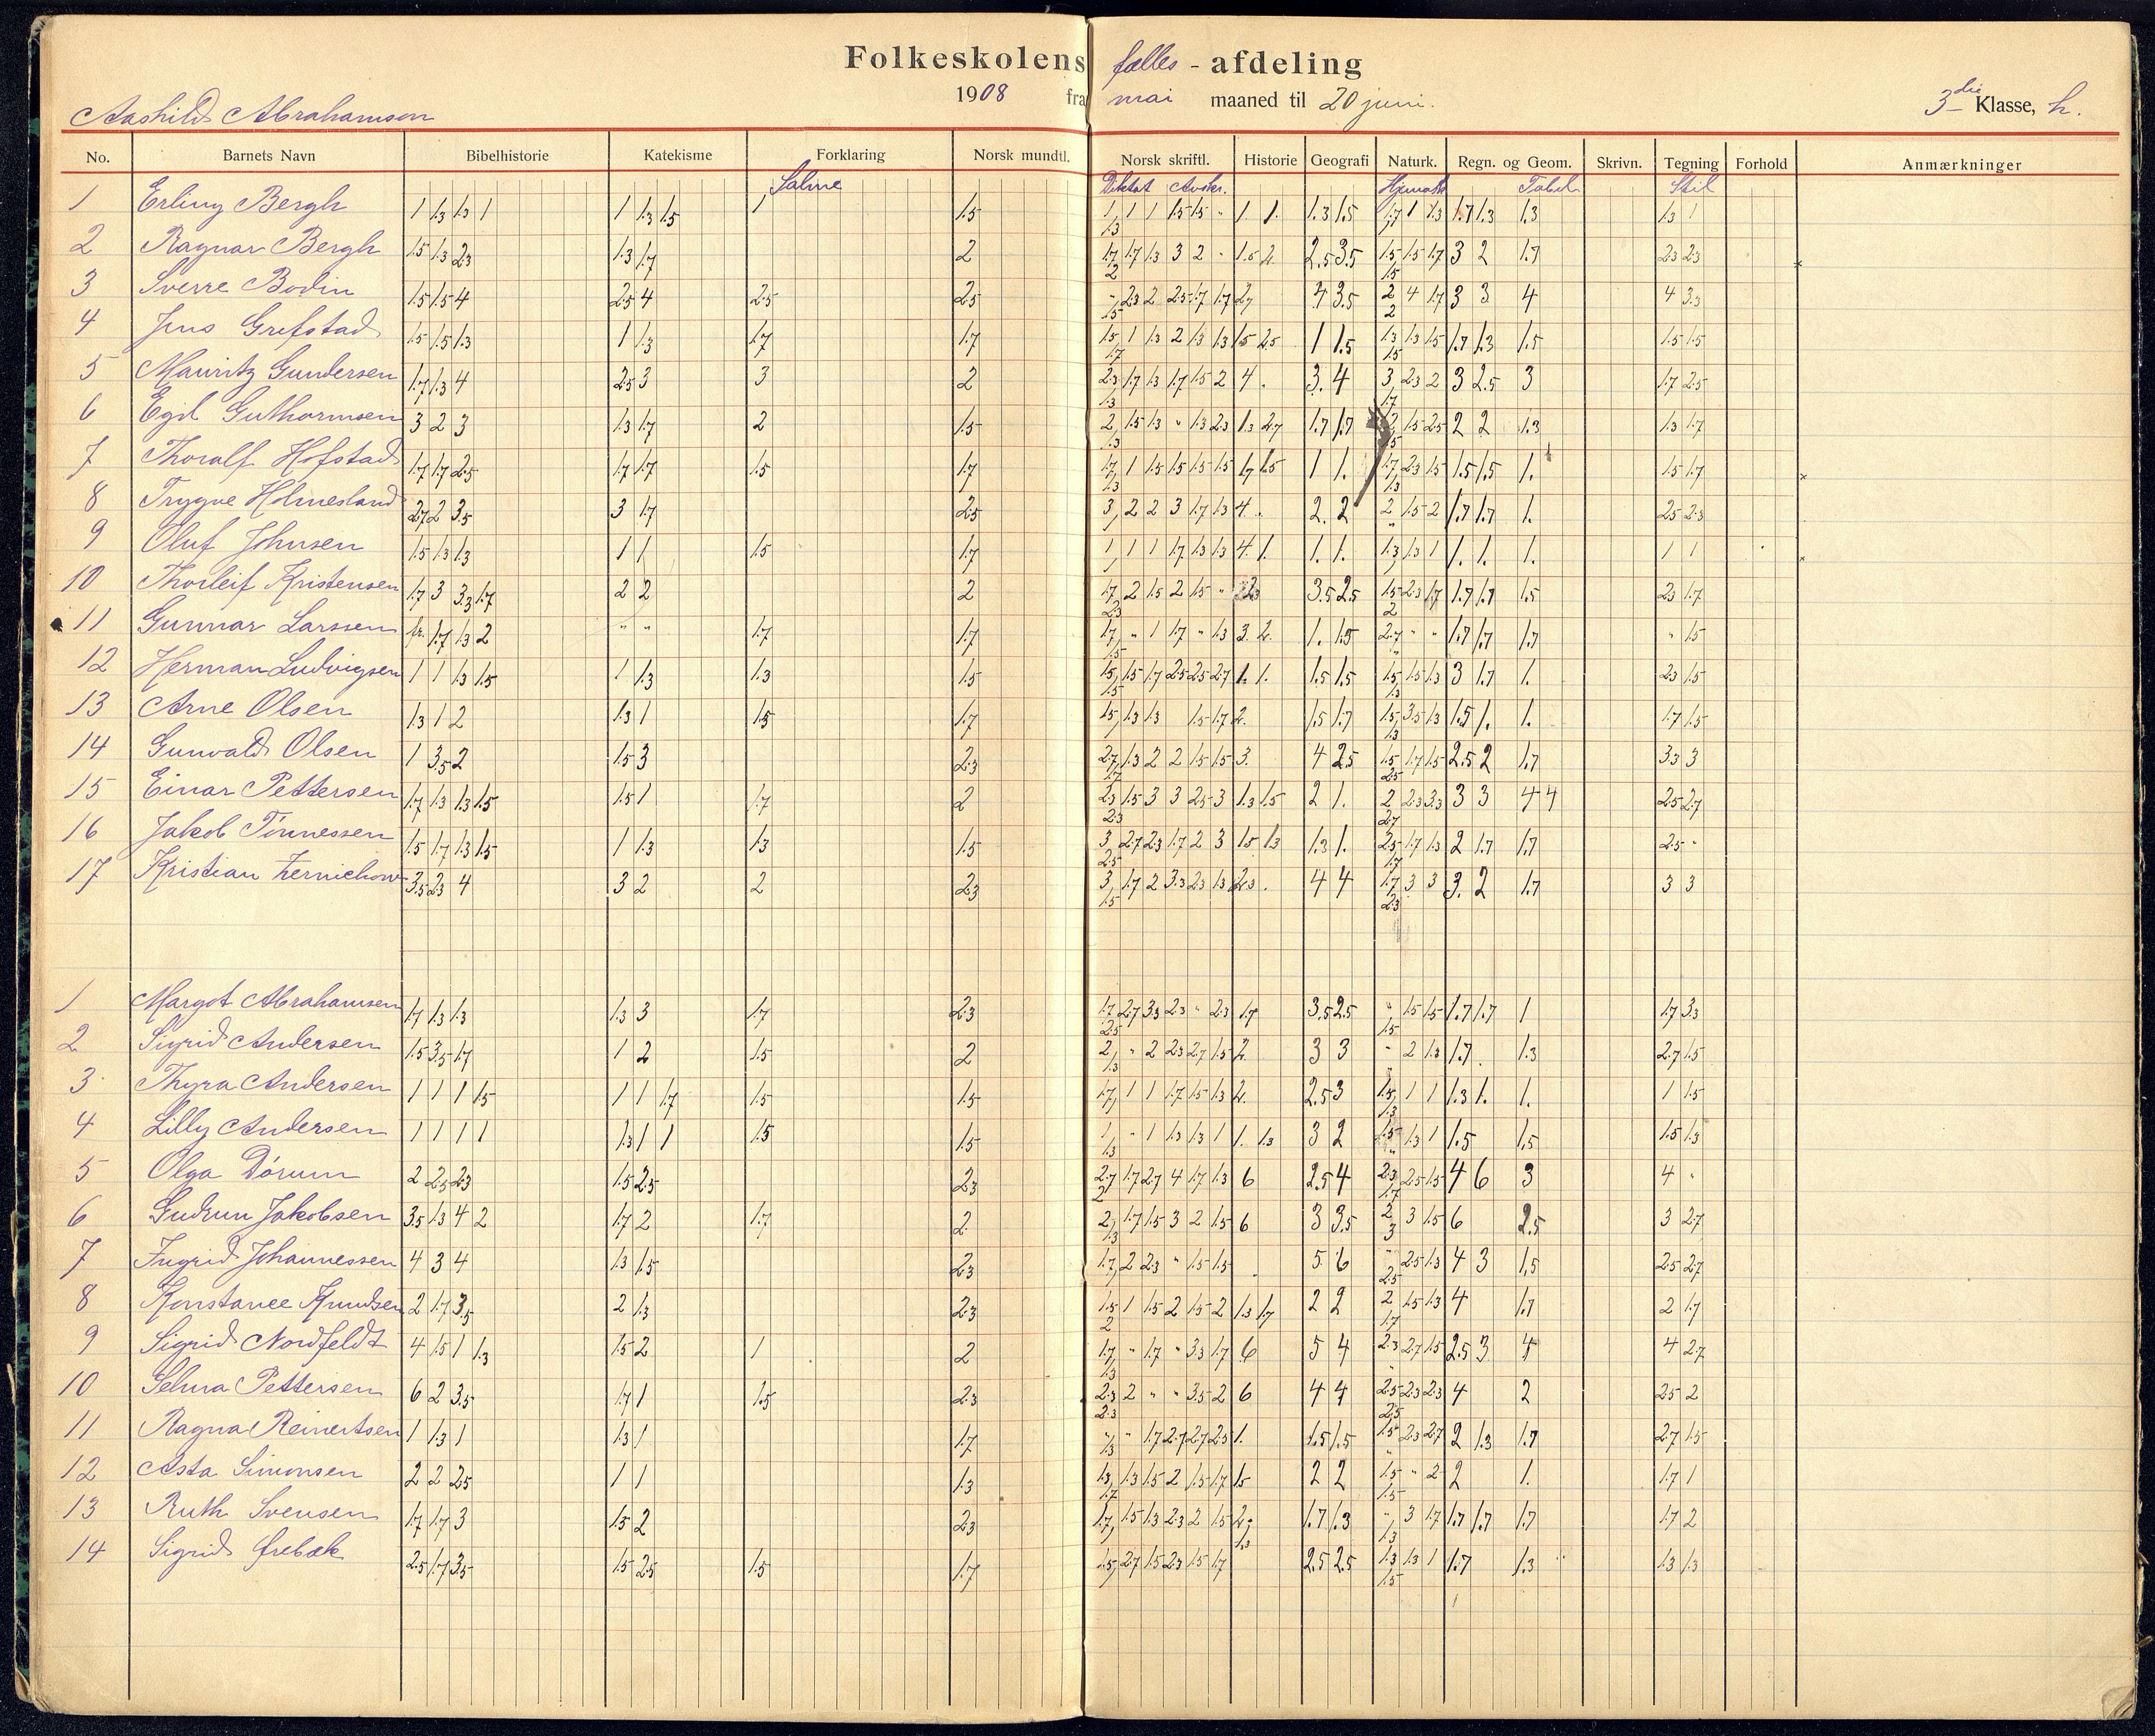 Folkeskolens fælles - afdeling
1908 fra mai maaned til 20 juni.
3die Klasse, h.
Aashild Abrahamson
No. Barnets Navn Bibelhistorie Katekisme Forklaring Norsk mundtl. Norsk skriftl. Historie Geografi Naturk. Regn. og Geom. Skrivn. Tegning Forhold Anmærkninger
Salme Diktat Avskr. Tabel Stil
1 Erling Bergh 1 1.3 1.3 1 1 1.3 1.5 1 1.5 1 1 1 1.5 1.5 " 1. 1. 1.3 1.5 1.7 1 1.3 1.7 1.3 1.3 1.3 1
1.3
2 Ragnar Bergh 1.5 1.3 2.3 1.3 1.7 2 1.7 1.7 1.3 3 2 " 2.5 3.5 1.5 1.5 1.7 3 2 1.7 2.3 2.3
2 1.5
3 Sverre Bodin 1.5 1.5 4 2.5 4 2.5 2.5 " 2.3 2 2.5 1.7 1.7 2.7 4 3.5 2 4 1.7 3 3 4 4 3.3
1.5 2
4 Jens Grefstad 1.5 1.5 1.3 1 1.3 1.7 1.7 1.5 1 1.3 2 1.3 1.3 1.5 2.5 1 1.5 1.3 1.3 1.5 1.7 1.3 1.5 1.5 1.5
1.7 1.5
5 Mauritz Gundersen 1.7 1.3 4 2.5 3 3 2 2.3 1.7 1.3 1.7 1.5 2 4. 3. 4 3 2.3 2 3 2.5 3 1.7 2.5
1.3 1.7
6 Egil Guthormsen 3 2 3 1.3 1.7 2 1.5 2 1.5 1.3 " 1.3 2.3 1.3 2.7 1.7 1.7 2 1.5 2.5 2 2 1.3 1.3 1.7
1.3 1.5
7 Thoralf Hofstad 1.7 1.7 2.5 1.7 1.7 1.5 1.7 1.7 1 1.5 1.5 1.5 1.5 1.7 1.5 1 1. 1.7 2.3 1.5 1.5 1.5 1. 1.5 1.7
1.3 1.3
8 Trygve Holmesland 2.7 2 3.5 3 1.7 2.5 3 2 2 3 1.7 1.3 4. 2. 2 2 1.5 2 1.7 1.7 1. 2.5 2.3
9 Oluf Johnsen 1.5 1.3 1.3 1 1 1.5 1.7 1 1 1 1.7 1.3 1.3 4. 1. 1. 1. 1.3 1.3 1 1. 1. 1. 1 1
10 Thorleif Kristensen 1.7 3 3.3 1.7 2 2 2 1.7 2 1.5 2 1.5 " 3.5 2.5 1.5 2.3 1.7 1.7 1.7 1.5 2.3 1.7
2.3 2
11 Gunnar Larssen fr. 1.7 1.3 2 " " 1.7 1.7 1.7 " 1 1.7 " 1.3 3. 2. 1. 1.5 2.7 " " 1.7 1.7 1.7 " 1.5
1.5
12 Herman Ludvigsen 1 1 1.3 1.5 1 1.3 1.3 1.5 1.5 1.5 1.7 2.5 2.5 2.7 1. 1. 1.5 1.5 1.5 1.5 1.3 3 1.7 1. 2.3 1.5
1.5 1.3
13 Arne Olsen 1.3 1 2 1.3 1 1.5 1.7 1.5 1.3 1.3 1.5 1.7 2. 1.5 1.7 1.5 3.5 1.3 1.5 1. 1. 1.7 1.5
1.3
14 Gunvald Olsen 1 3.5 2 1.5 3 2.3 2.7 1.3 2 2 1.5 1.5 3. 4 2.5 1.5 1.7 1.5 2.5 2 1.7 3.3 3
1.7 2.5
15 Einar Pettersen 1.7 1.3 1.3 1.5 1.5 1 1.7 2 2.3 1.5 3 3 2.5 3 1.3 1.5 2 1. 2 2.3 3.3 3 3 4 4 2.5 2.7
2.3 2.7
16 Jakob Tönnessen 1.5 1.7 1.3 1.5 1 1.3 1.3 1.5 3 2.7 2.3 1.7 2 3 1.5 1.3 1.3 1. 2.5 1.7 1.3 2 1.7 1.7 2.5 "
2.5 1.7
17 Kristian Zernichow 3.5 2.3 4 3 2 2 2.3 3 1.7 2 3.3 2.3 1.3 2.3. 4 4 1.7 3 3 3. 2 1.7 3 3
1.5 2.3
1 Margot Abrahamsen 1.7 1.3 1.3 1.3 3 1.7 2.3 1.7 2.7 3.3 2.3 " 2.3 1.7 3.5 2.5 " 1.5 1.5 1.7 1.7 1 1.7 3.3
2.5 1.5
2 Sigrid Andersen 1.5 3.5 1.7 1 2 1.5 2 2 " 2 2.3 2.7 1.5 2. 3 3 " 2 1.3 1.7. 1.3 2.7 1.5
1.3
3 Thyra Andersen 1 1 1 1.5 1 1 1.7 1.5 1.5 1.7 1 1 1.7 1.5 1.3 2. 2.5 3 1.5 1 1 1.3 1. 1. 1 1.5
1.3
4 Lilly Andersen 1 1 1 1 1.3 1 1 1.5 1.5 1 " 1 1.3 1.3 1 1. 1.3 3 2 1.5 1.3 1 1.5 1.5 1.5 1.3
1.3
5 Olga Dörum 2 2.5 2.3 1.5 2.5 2.3 2.7 1.7 2.7 4 1.7 1.3 6 2.5 4 2.3 2.5 1.5 4 6 3 4 "
2 1.7
6 Gudrun Jakobsen 3.5 1.3 4 2 1.7 2 1.7 2 2 1.7 1.5 3 2 1.5 6 3 3.5 2 3 1.5 6 2.5 3 2.7
1.3 3
7 Ingrid Johannessen 4 3 4 1.3 1.5 2.3 1.7 2 2.3 " 1.5 1.5 5 6 " 2.5 1.3 4 3 1.5 2.5 2.7
2.5
8 Konstance Knudsen 2 1.7 3.5 2 1.3 2.3 1.5 1 1.5 2 1.5 2 1.3 1.7 2 2 2 1.5 1.3 4 1.7 2 1.7
2 1.7
9 Sigrid Nordfeldt 4 1.5 1 1.3 1.5 2 1 2 1.7 " 1.7 " 3.3 1.7 6 5 4 2.3 2.7 1.5 2.5 3 4 4 2.7
1.3
10 Selma Pettersen 6 2 3.5 1.7 1 1.5 2.3 2.3 2 " " 3.5 2 6 4 4 2.5 2.3 2.3 4 2 2.5 2
2.3 2.5
11 Ragna Reinertsen 1 1.3 1 1.3 1 1.7 " " 1.7 2.7 2.7 2.3 1. 1.5 1.5 1.5 2.3 2.7 2 1.3 1.7 2.7 1.5
1.3
12 Asta Simonsen 2 2 2.5 1 1 1.3 1.3 1.3 1.5 2 1.5 1.7 1.5 2 2 1.5 " 2 2 1. 1.7 1
1.7 1.5
13 Ruth Svensen 1.7 1.7 3 1.5 2 2.3 1.7 1.5 1.3 2.3 2 1.5 2. 1.7 1.3 " 3 1.7 1.7 1.7 1.7 1.7 2
1.3 1.3
14 Sigrid Örebæk 2.5 1.7 3.5 1.5 2.5 1.5 1.7 1.5 2.7 1.5 2.3 1.5 1.7 2.5 2.5 1.3 1.3 1 1.7 1.3 1.3 1.3
1.5